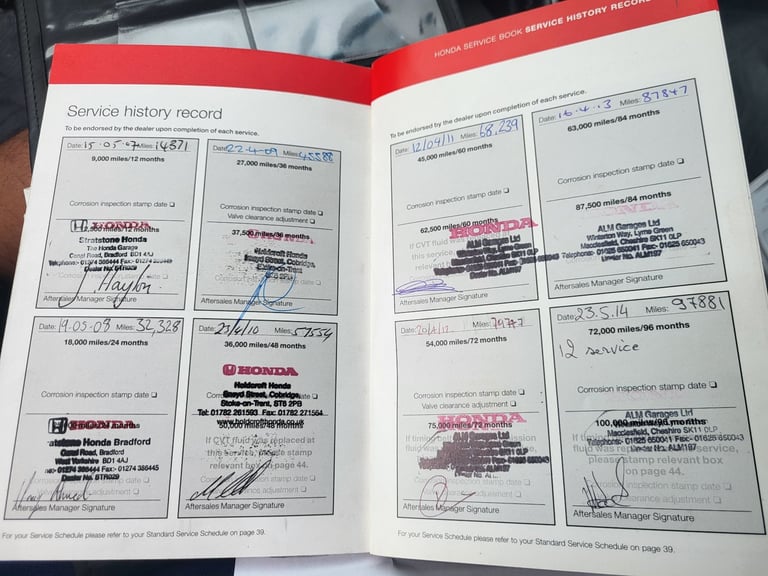 HONDA SERVICE BOOK SERVICE HISTORY RECORD
Service history record
To be endorsed by the dealer upon completion of each service.
Date: 15-05-07 Miles: 14371
9,000 miles/12 months
Corrosion inspection stamp date
HONDA
Stratstone Honda
The Honda Garage
Canal Road, Bradford BD1 4AJ
Aftersales Manager Signature
Date: 22-4-09 Miles: 45588
27,000 miles/36 months
Corrosion inspection stamp date
Valve clearance adjustment
37,500 miles/36 months
Holdcroft Honda
Stoke-on-Trent
Aftersales Manager Signature
Date: 19-05-08 Miles: 32,328
18,000 miles/24 months
Corrosion inspection stamp date
Stratstone Honda Bradford
Canal Road, Bradford
West Yorkshire BD1 4AJ
Aftersales Manager Signature
Date: 23/4/10 Miles: 57554
36,000 miles/48 months
Corrosion inspection stamp date
HONDA
Holdcroft Honda
Sneyd Street, Cobridge,
Stoke-on-Trent, ST6 2PB
Tel: 01782 261593 Fax: 01782 271564
www.holdcrofthonda.co.uk
50,000 miles/48 months
If CVT fluid was replaced at
this service, please stamp
relevant box
on page 44.
Aftersales Manager Signature
For your Service Schedule please refer to your Standard Service Schedule on page 39.
To be endorsed by the dealer upon completion of each service.
Date: 12/04/11 Miles: 68,239
45,000 miles/60 months
Corrosion inspection stamp date
62,500 miles/60 months
HONDA
ALM Garages Ltd
Aftersales Manager Signature
Date: 16.4.13 Miles: 87847
63,000 miles/84 months
Corrosion inspection stamp date
87,500 miles/84 months
ALM Garages Ltd
Winterton Way, Lyme Green
Macclesfield, Cheshire SK11 0LP
Telephone: 01625 650041 Fax: 01625 650043
Dealer No. ALM197
Aftersales Manager Signature
Date: 20/4/12 Miles:
54,000 miles/72 months
Corrosion inspection stamp date
Valve clearance adjustment
75,000 miles/72 months
HONDA
ALM Garages Ltd
Aftersales Manager Signature
Date: 23.5.14 Miles: 97881
72,000 miles/96 months
12 service
Corrosion inspection stamp date
ALM Garages Ltd
100,000 miles/96 months
Macclesfield, Cheshire SK11 0LP
Telephone: 01625 650041 Fax: 01625 650043
please stamp relevant box
on page 44.
Aftersales Manager Signature
For your Service Schedule please refer to your Standard Service Schedule on page 39.